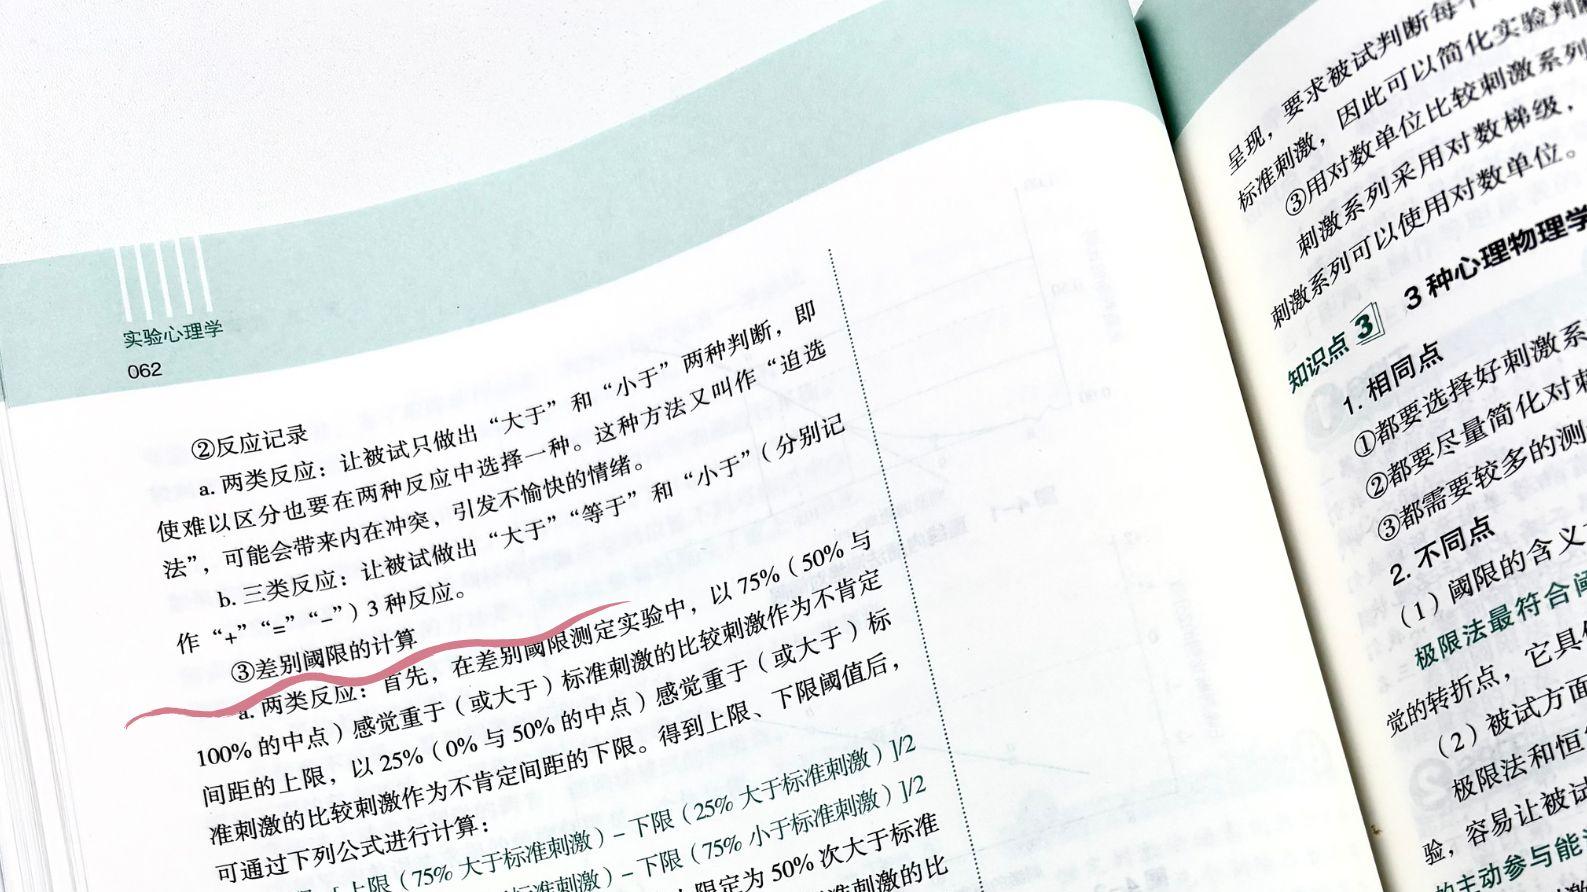 实验心理学
062
②反应记录
a. 两类反应：让被试只做出“大于”和“小于”两种判断，即
使难以区分也要在两种反应中选择一种。这种方法又叫作“迫选
法”，可能会带来内在冲突，引发不愉快的情绪。
b. 三类反应：让被试做出“大于”“等于”和“小于”（分别记
作“+”“=”“−”）3 种反应。
③差别阈限的计算
a. 两类反应：首先，在差别阈限测定实验中，以 75%（50% 与
100% 的中点）感觉重于（或大于）标准刺激的比较刺激作为不肯定
间距的上限，以 25%（0% 与 50% 的中点）感觉重于（或大于）标
准刺激的比较刺激作为不肯定间距的下限。得到上限、下限阈值后，
可通过下列公式进行计算：
上限（75% 大于标准刺激）− 下限（25% 大于标准刺激）]/2
标准刺激）− 下限（75% 小于标准刺激）]/2
限定为 50% 次大于标准
激的比
呈现，要求被试判断每个
标准刺激，因此可以简化实验判断
③用对数单位比较刺激系列
刺激系列采用对数梯级，
刺激系列可以使用对数单位。
知识点 3 3 种心理物理学
1. 相同点
①都要选择好刺激系
②都要尽量简化对刺
③都需要较多的测
2. 不同点
（1）阈限的含义
极限法最符合阈
觉的转折点，它具
（2）被试方面
极限法和恒
验，容易让被试
的主动参与能